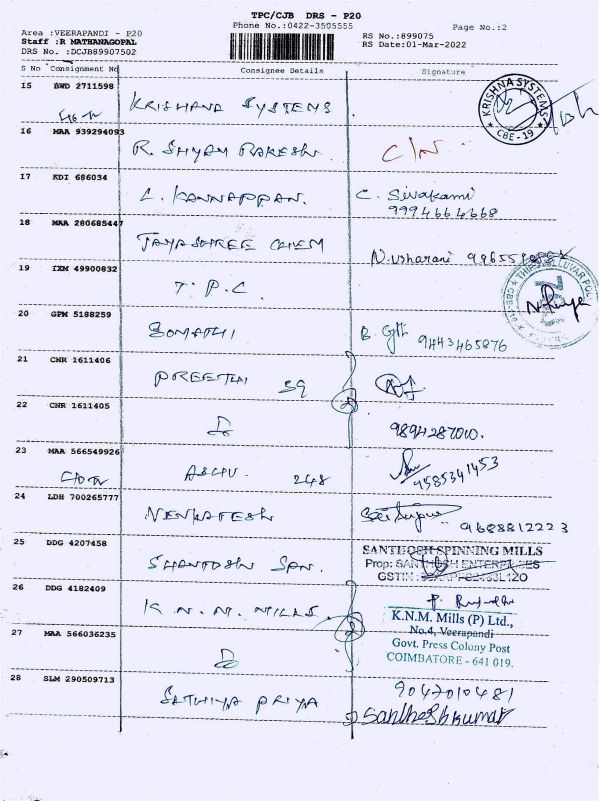 TPC/CJB DRS - P20
Phone No.:0422-3505555
Page No.:2
Area :VEERAPANDI - P20
Staff :R MATHANAGOPAL
DRS No. :DCJB89907502
RS No.:899075
RS Date:01-Mar-2022
S No Consignment No Consignee Details Signature
15 BWD 2711598 KRISHANA SYSTEMS
KRISHNA SYSTEMS
CBE - 19
16 MAA 939294093 R. SHYAM RAKESH C/N
17 KDI 686034 L. KANNAPPAN. C. Sivakami
9994664668
18 MAA 280685447 JAYASHREE CHEM N.Usharani
19 IXM 49900832 T.P.C.
20 GPM 5188259 GOMATHI 9443465876
21 CNR 1611406 PREETHI 59
22 CNR 1611405 9894287010.
23 MAA 566549926 ASHU. 248 9585341453
24 LDH 700265777 VENKATESH 9688812223
25 DDG 4207458 SHANTOSH SPN. SANTHOSH SPINNING MILLS
Prop: SANTHOSH ENTERPRISES
GSTIN
26 DDG 4182409 K.N.M. MILLS
K.N.M. Mills (P) Ltd.,
No.4, Veerapandi
27 MAA 566036235 Govt. Press Colony Post
COIMBATORE - 641 019.
28 SLM 290509713 SATHIYA PRIYA 9042010481
Santheshkumar